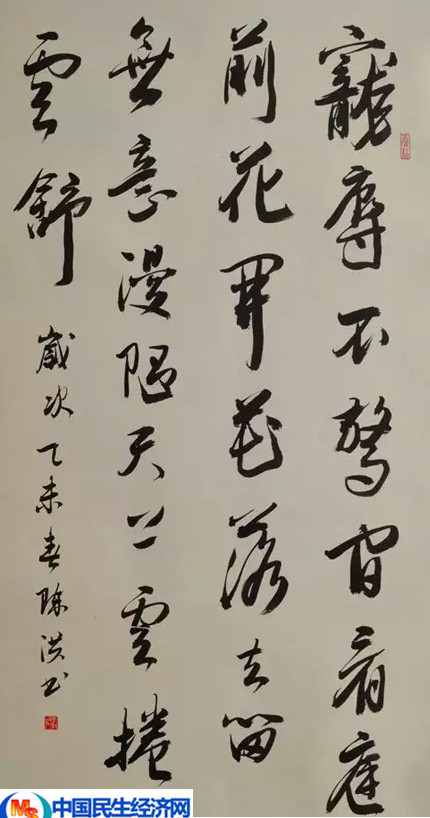 寵辱不驚閒看庭
前花開花落去留
無意漫隨天上雲捲
雲舒
歲次乙未春陳洪书
中国民生经济网